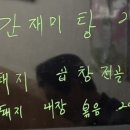 간재미 탕 2
돼지 곱창전골
돼지 내장 볶음 20